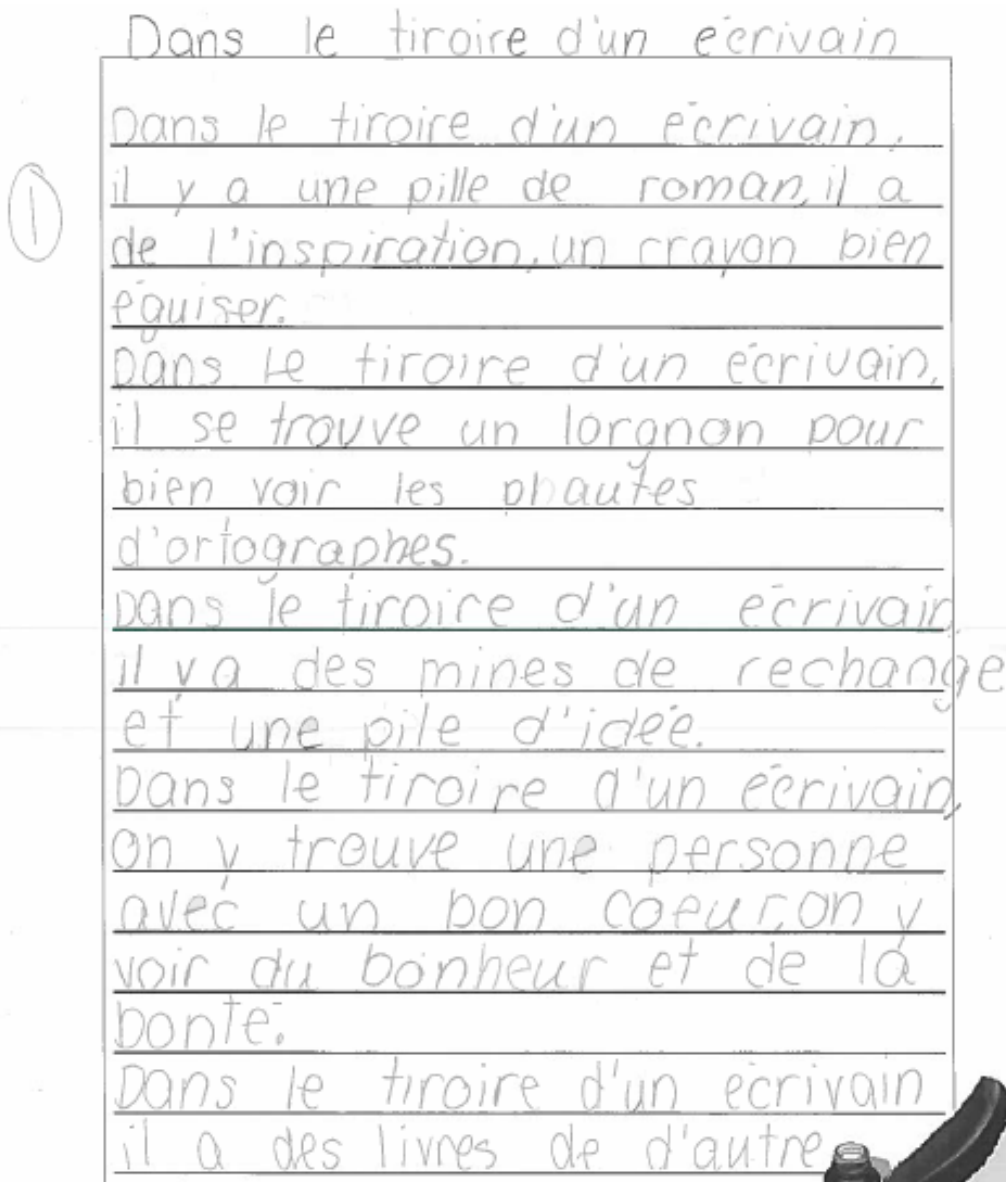 Dans le tiroire d'un écrivain
Dans le tiroire d'un écrivain,
il y a une pille de roman, il a
1
de l'inspiration, un crayon bien
éguiser.
Dans le tiroire d'un écrivain,
il se trouve un lorgnon pour
bien voir les phautes
d'ortographes.
Dans le tiroire d'un écrivain,
il y a des mines de rechange
et une pile d'idée.
Dans le tiroire d'un écrivain,
on y trouve une personne
avec un bon coeur, on y
voir du bonheur et de la
bonté.
Dans le tiroire d'un écrivain
il a des livres de d'autre